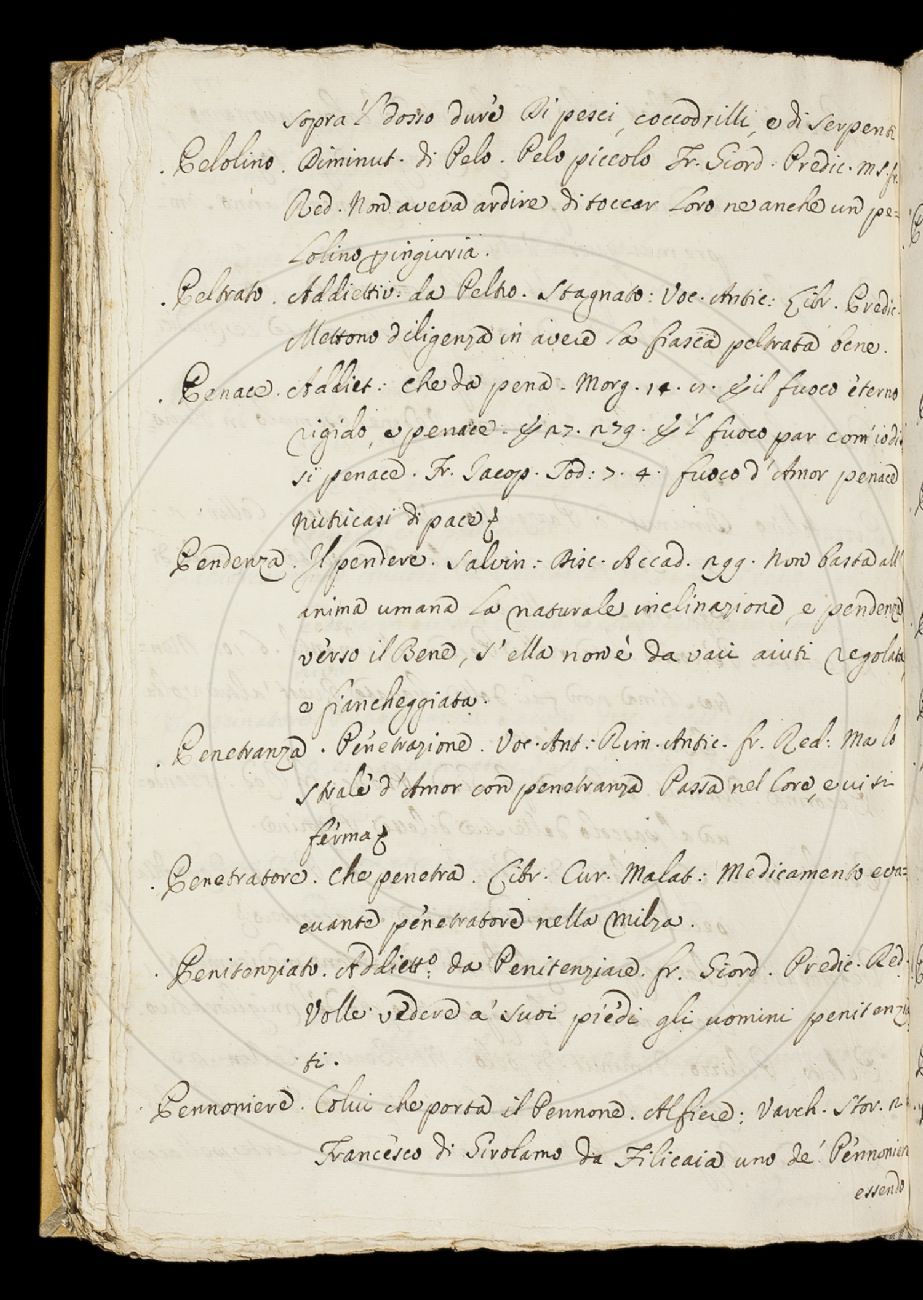 sopra 'l dosso dure di pesci, coccodrilli, e di serpenti
Pelolino. Diminut. di Pelo. Pelo piccolo Fr. Giord. Predic. ms. fr.
Red. Non aveva ardire di toccar loro ne anche un pe=
lolino p ingiuria.
Peltrato. Addiettiv: da Peltro. Stagnato: Voc. Antic: Libr. Predic.
Mettono diligenza in avere la fiasca peltrata bene.
Penace. Addiet: che da pena. Morg. 14. il fuoco eterno
rigido, e penace. 27. 279. 'l fuoco par com' io di
si penace. Fr. Jacop. Tod: 7. 4. fuoco d'Amor penace
Nutricasi di pace
Pendenza. Il pendere. Salvin: Disc. Accad. 299. Non basta all'
anima umana la naturale inclinazione, e pendenza
verso il Bene, s' ella non è da vari aiuti regolata,
e fiancheggiata.
Penetranza. Penetrazione. Voc. Ant: Rim. Antic. fr. Red: Ma lo
strale d'Amor con penetranza Passa nel Core, e vi si
ferma
Penetratore. Che penetra. Libr. Cur. Malat: Medicamento eva=
cuante penetratore nella Milza.
Penitenziato. Addietto. da Penitenziare. fr. Giord. Predic. Red.
Volle vedere a' suoi piedi gli uomini penitenzia
ti.
Pennoniere. Colui che porta il Pennone. Alfiere: Varch. Stor. 2.
Francesco di Girolamo da Filicaia uno de' Pennonieri
essendo